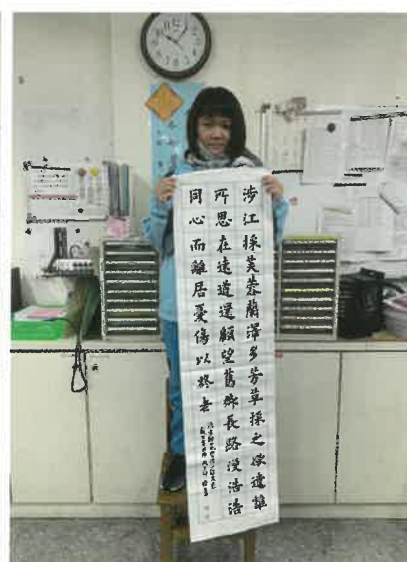 涉江採芙蓉蘭澤多芳草採之欲遺誰
所思在遠道還顧望舊鄉長路漫浩浩
同心而離居憂傷以終老